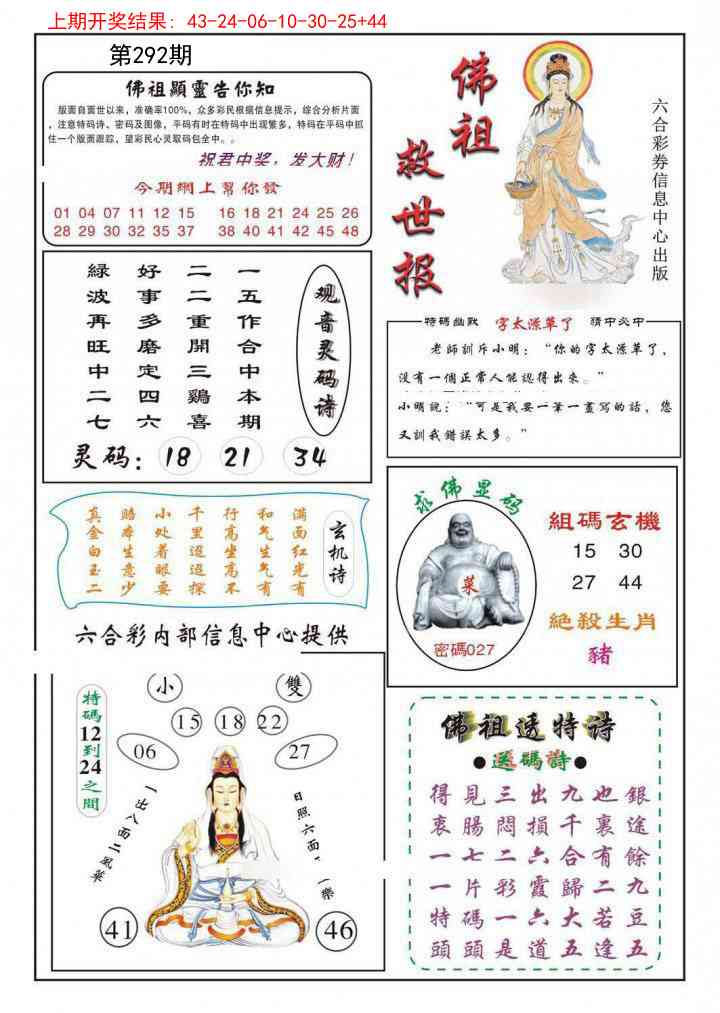 上期开奖结果: 43-24-06-10-30-25+44
第292期
佛祖顯靈告你知
版面自面世以来，准确率100%，众多彩民根据信息提示，综合分析片面
，注意特码诗、密码及图像，平码有时在特码中出现繁多，特码在平码中抓
住一个版面跟踪，望彩民心灵取码包全中。。
祝君中奖，发大财！
今期網上幫你發
01 04 07 11 12 15 16 18 21 24 25 26
28 29 30 32 35 37 38 40 41 42 45 48
佛祖救世报
六合彩券信息中心出版
一五作合中本期
二二重開三鷄喜
好事多磨定四六
緑波再旺中二七
观音灵码诗
灵码: 18 21 34
特碼幽默 字太潦草了 猜中必中
老師訓斥小明：“你的字太潦草了，
没有一個正常人能認得出來。”
小明說：“可是我要一筆一畫寫的話，您
又訓我錯誤太多。”
满面红光有
和气生气有
行高坐高不
千里迢迢探
小处着眼要
赔本生意少
真金白玉二
玄机诗
六合彩内部信息中心提供
求佛显码
菜
密碼027
組碼玄機
15 30
27 44
絶殺生肖
豬
特碼12到24之間
小 雙
15 18 22
06 27
一出八面二風華
日照六面一樂
41 46
佛祖透特诗
●送碼詩●
得見三出九也銀
衷腸悶損千裏途
一七二六合有餘
一片彩霞歸二九
特碼一六大若豆
頭頭是道五逢五